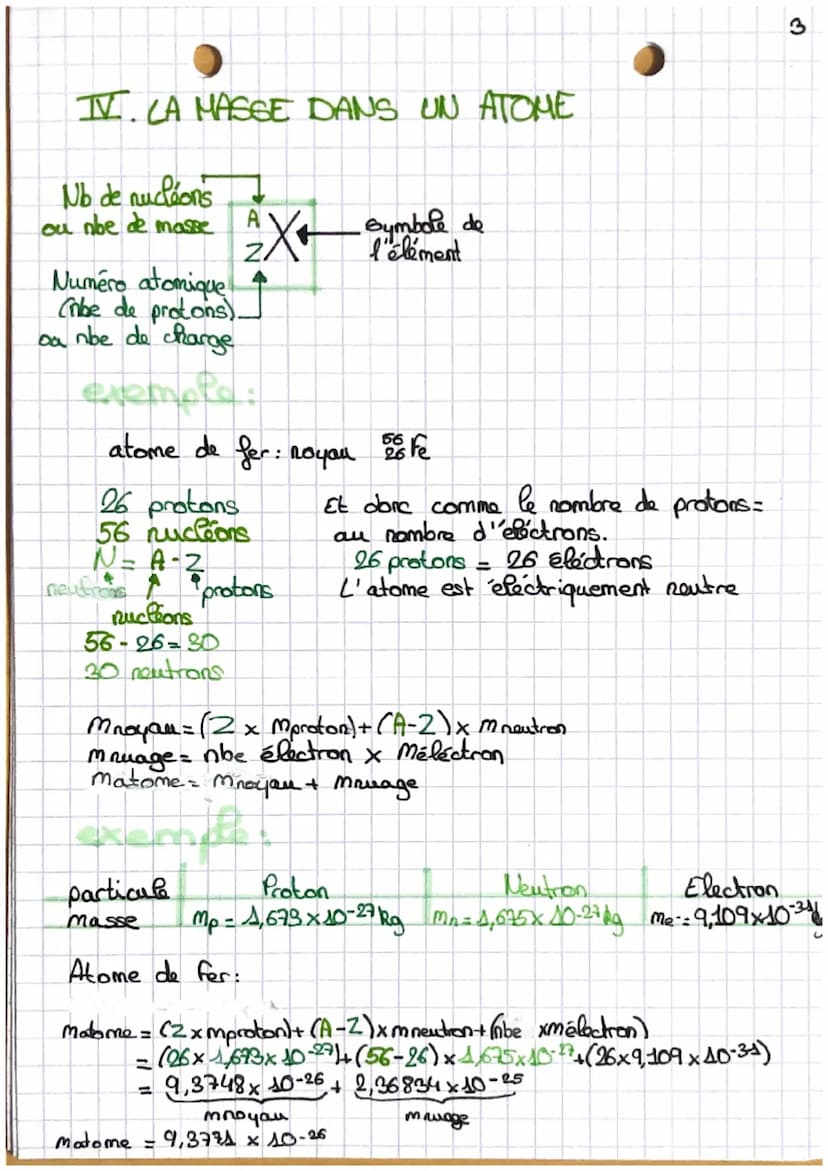 3
IV. LA MASSE DANS UN ATOME
Nb de nucléons
ou nbe de masse
A
Z
X
symbole de
l'élément
Numéro atomique
(nbe de protons)
ou nbe de charge
exemple:
atome de fer: noyau 56 26 Fe
26 protons
56 nucléons
N = A - Z
neutrons
protons
nucléons
56 - 26 = 30
30 neutrons
Et donc comme le nombre de protons =
au nombre d'éléctrons.
26 protons = 26 éléctrons
L'atome est éléctriquement neutre
mnoyau = (Z x mproton) + (A-Z) x mneutron
mnuage = nbe électron x méléctron
matome = mnoyau + mnuage
exemple:
particule Proton Neutron Electron
masse mp = 1,673 x 10-27 kg mn = 1,675 x 10-27 kg me- = 9,109 x 10-31
Atome de fer:
matome = (Z x mproton) + (A-Z) x mneutron + (nbe x mélectron)
= (26 x 1,673 x 10-27) + (56-26) x 1,675 x 10-27 + (26 x 9,109 x 10-31)
= 9,3748 x 10-26 + 2,36834 x 10-25
mnoyau mnuage
matome = 9,3771 x 10-26